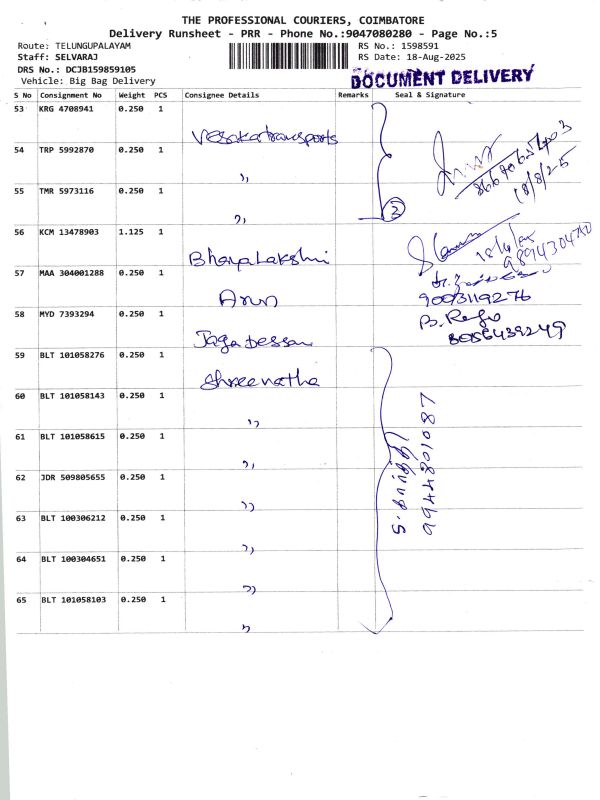 THE PROFESSIONAL COURIERS, COIMBATORE
Delivery Runsheet - PRR - Phone No.:9047080280 - Page No.:5
Route: TELUNGUPALAYAM
RS No.: 1598591
Staff: SELVARAJ
RS Date: 18-Aug-2025
DRS No.: DCJB159859105
Vehicle: Big Bag Delivery
DOCUMENT DELIVERY
S No Consignment No Weight PCS Consignee Details Remarks Seal & Signature
53 KRG 4708941 0.250 1 transports
54 TRP 5992870 0.250 1 ,,
18/8/25
55 TMR 5973116 0.250 1 ,, 2
56 KCM 13478903 1.125 1 BhagaLakshmi
9894304740
57 MAA 304001288 0.250 1 Arun 9003119276
58 MYD 7393294 0.250 1 Jagadessan
59 BLT 101058276 0.250 1 Shreenatha
60 BLT 101058143 0.250 1 ,,
61 BLT 101058615 0.250 1 ,,
9944801087
62 JDR 509805655 0.250 1 ,,
63 BLT 100306212 0.250 1 ,,
64 BLT 100304651 0.250 1 ,,
65 BLT 101058103 0.250 1 ,,